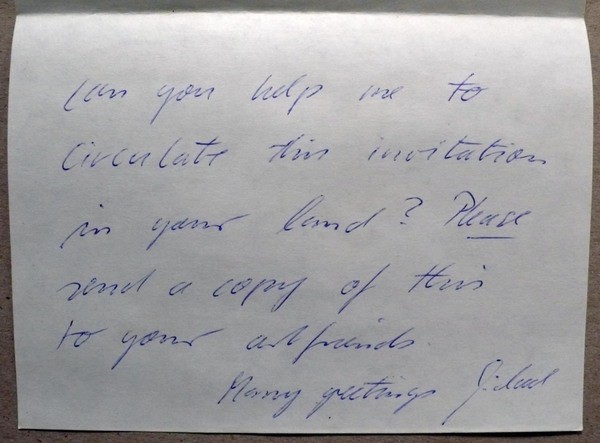 Can you help me to
circulate this invitation
in your land? Please
send a copy of this
to your artfriends.
Many greetings